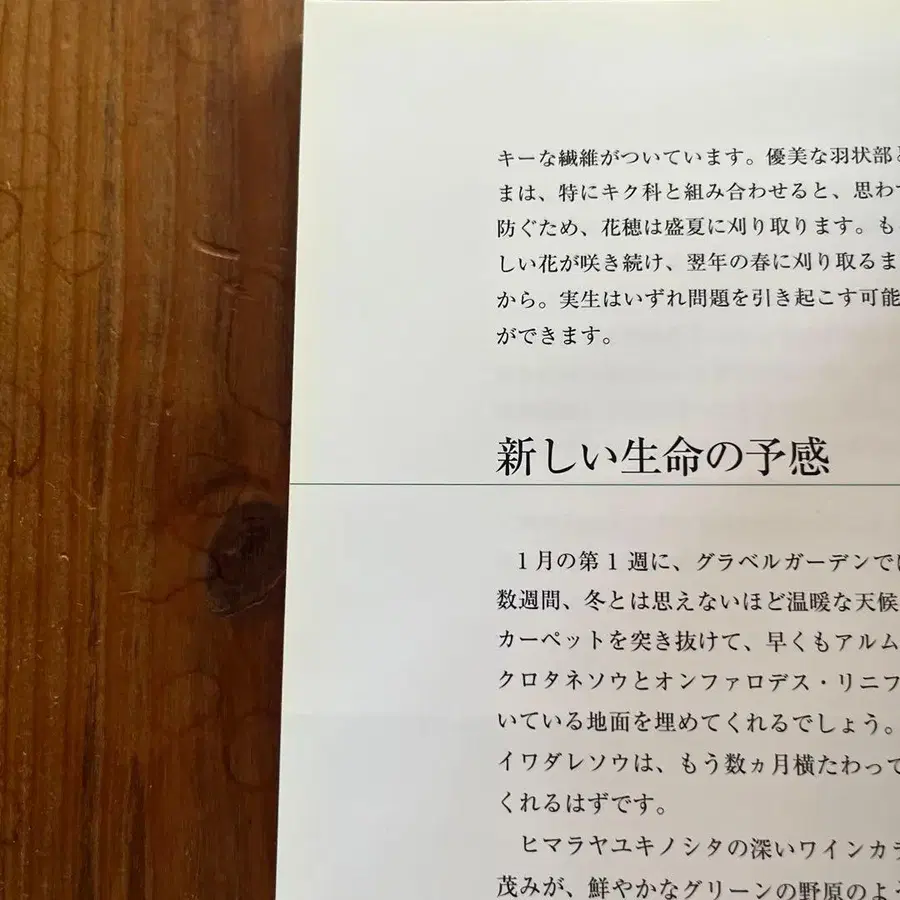 キーな繊維がついています。優美な羽状部と
まは、特にキク科と組み合わせると、思わ
防ぐため、花穂は盛夏に刈り取ります。も
しい花が咲き続け、翌年の春に刈り取るま
から。実生はいずれ問題を引き起こす可能
ができます。
新しい生命の予感
1月の第1週に、グラベルガーデンで
数週間、冬とは思えないほど温暖な天候
カーペットを突き抜けて、早くもアルム
クロタネソウとオンファロデス・リニフ
いている地面を埋めてくれるでしょう。
イワダレソウは、もう数ヵ月横たわって
くれるはずです。
ヒマラヤユキノシタの深いワインカラ
茂みが、鮮やかなグリーンの野原のよう